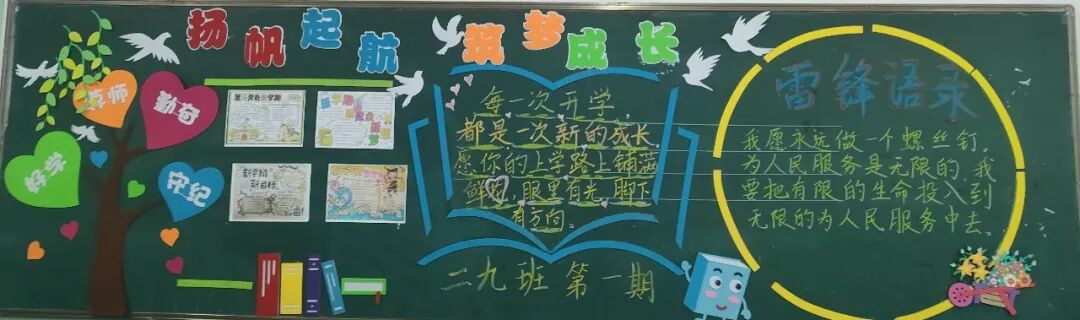 扬帆起航
筑梦成长
尊师
勤奋
好学
守纪
新学期
新目标
每一次开学,
都是一次新的成长
愿你的上学路上铺满
鲜花,眼里有光,脚下
有方向。
二九班 第一期
雷锋语录
我愿永远做一个螺丝钉。
为人民服务是无限的,我
要把有限的生命投入到
无限的为人民服务中去。